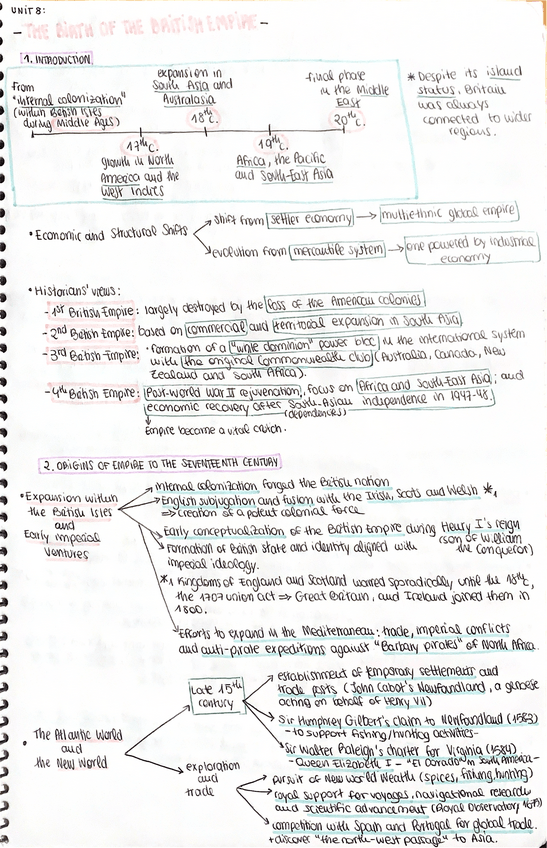 UNIT 8:
- THE BIRTH OF THE BRITISH EMPIRE -
1. INTRODUCTION
from
"internal colonization"
(within British Isles
during Middle Ages)
17th c.
growth in North
America and the
West Indies
expansion in
South Asia and
Australasia
18th c.
19th c.
Africa, the Pacific
and South-East Asia
final phase
in the Middle
East
20th c.
* Despite its island
status, Britain
was always
connected to wider
regions.
• Economic and structural shifts
shift from settler economy → multiethnic global empire
evolution from mercantile system → one powered by industrial
economy
• Historians' views:
- 1st British Empire: largely destroyed by the loss of the American colonies
- 2nd British Empire: based on commercial and territorial expansion in South Asia
- 3rd British Empire: • formation of a "white dominion" power bloc in the international system
with the original Commonwealth club (Australia, Canada, New
Zealand and South Africa).
- 4th British Empire: Post-World War II rejuvenation, focus on Africa and South-East Asia; and
economic recovery after South-Asian independence in 1947-48.
(dependencies)
Empire became a vital crutch.
2. ORIGINS OF EMPIRE TO THE SEVENTEENTH CENTURY
• Expansion within
the British Isles
and
Early imperial
Ventures
Internal colonization forged the British nation
English subjugation and fusion with the Irish, Scots and Welsh *1
⇒ Creation of a potent colonial force
Early conceptualization of the British Empire during Henry I's reign
(son of William
the Conqueror)
Formation of British state and identity aligned with
imperial ideology.
*1 Kingdoms of England and Scotland warred sporadically until the 18th c,
the 1707 union act ⇒ Great Britain, and Ireland joined them in
1800.
Efforts to expand in the Mediterranean: trade, imperial conflicts
and anti-pirate expeditions against "Barbary pirates" of North Africa.
• The Atlantic World
and
the New World
late 15th
century
establishment of temporary settlements and
trade posts (John Cabot's Newfoundland, a genoese
acting on behalf of Henry VII)
Sir Humphrey Gilbert's claim to Newfoundland (1583)
- to support fishing/hunting activities -
Sir Walter Raleigh's charter for Virginia (1584).
- Queen Elizabeth I - "El Dorado" in South America -
exploration
and
trade
pursuit of New World Wealth (spices, fishing, hunting)
royal support for voyages, navigational research
and scientific advancement (Royal Observatory, 1675)
competition with Spain and Portugal for global trade.
+ discover "the north-west passage" to Asia.